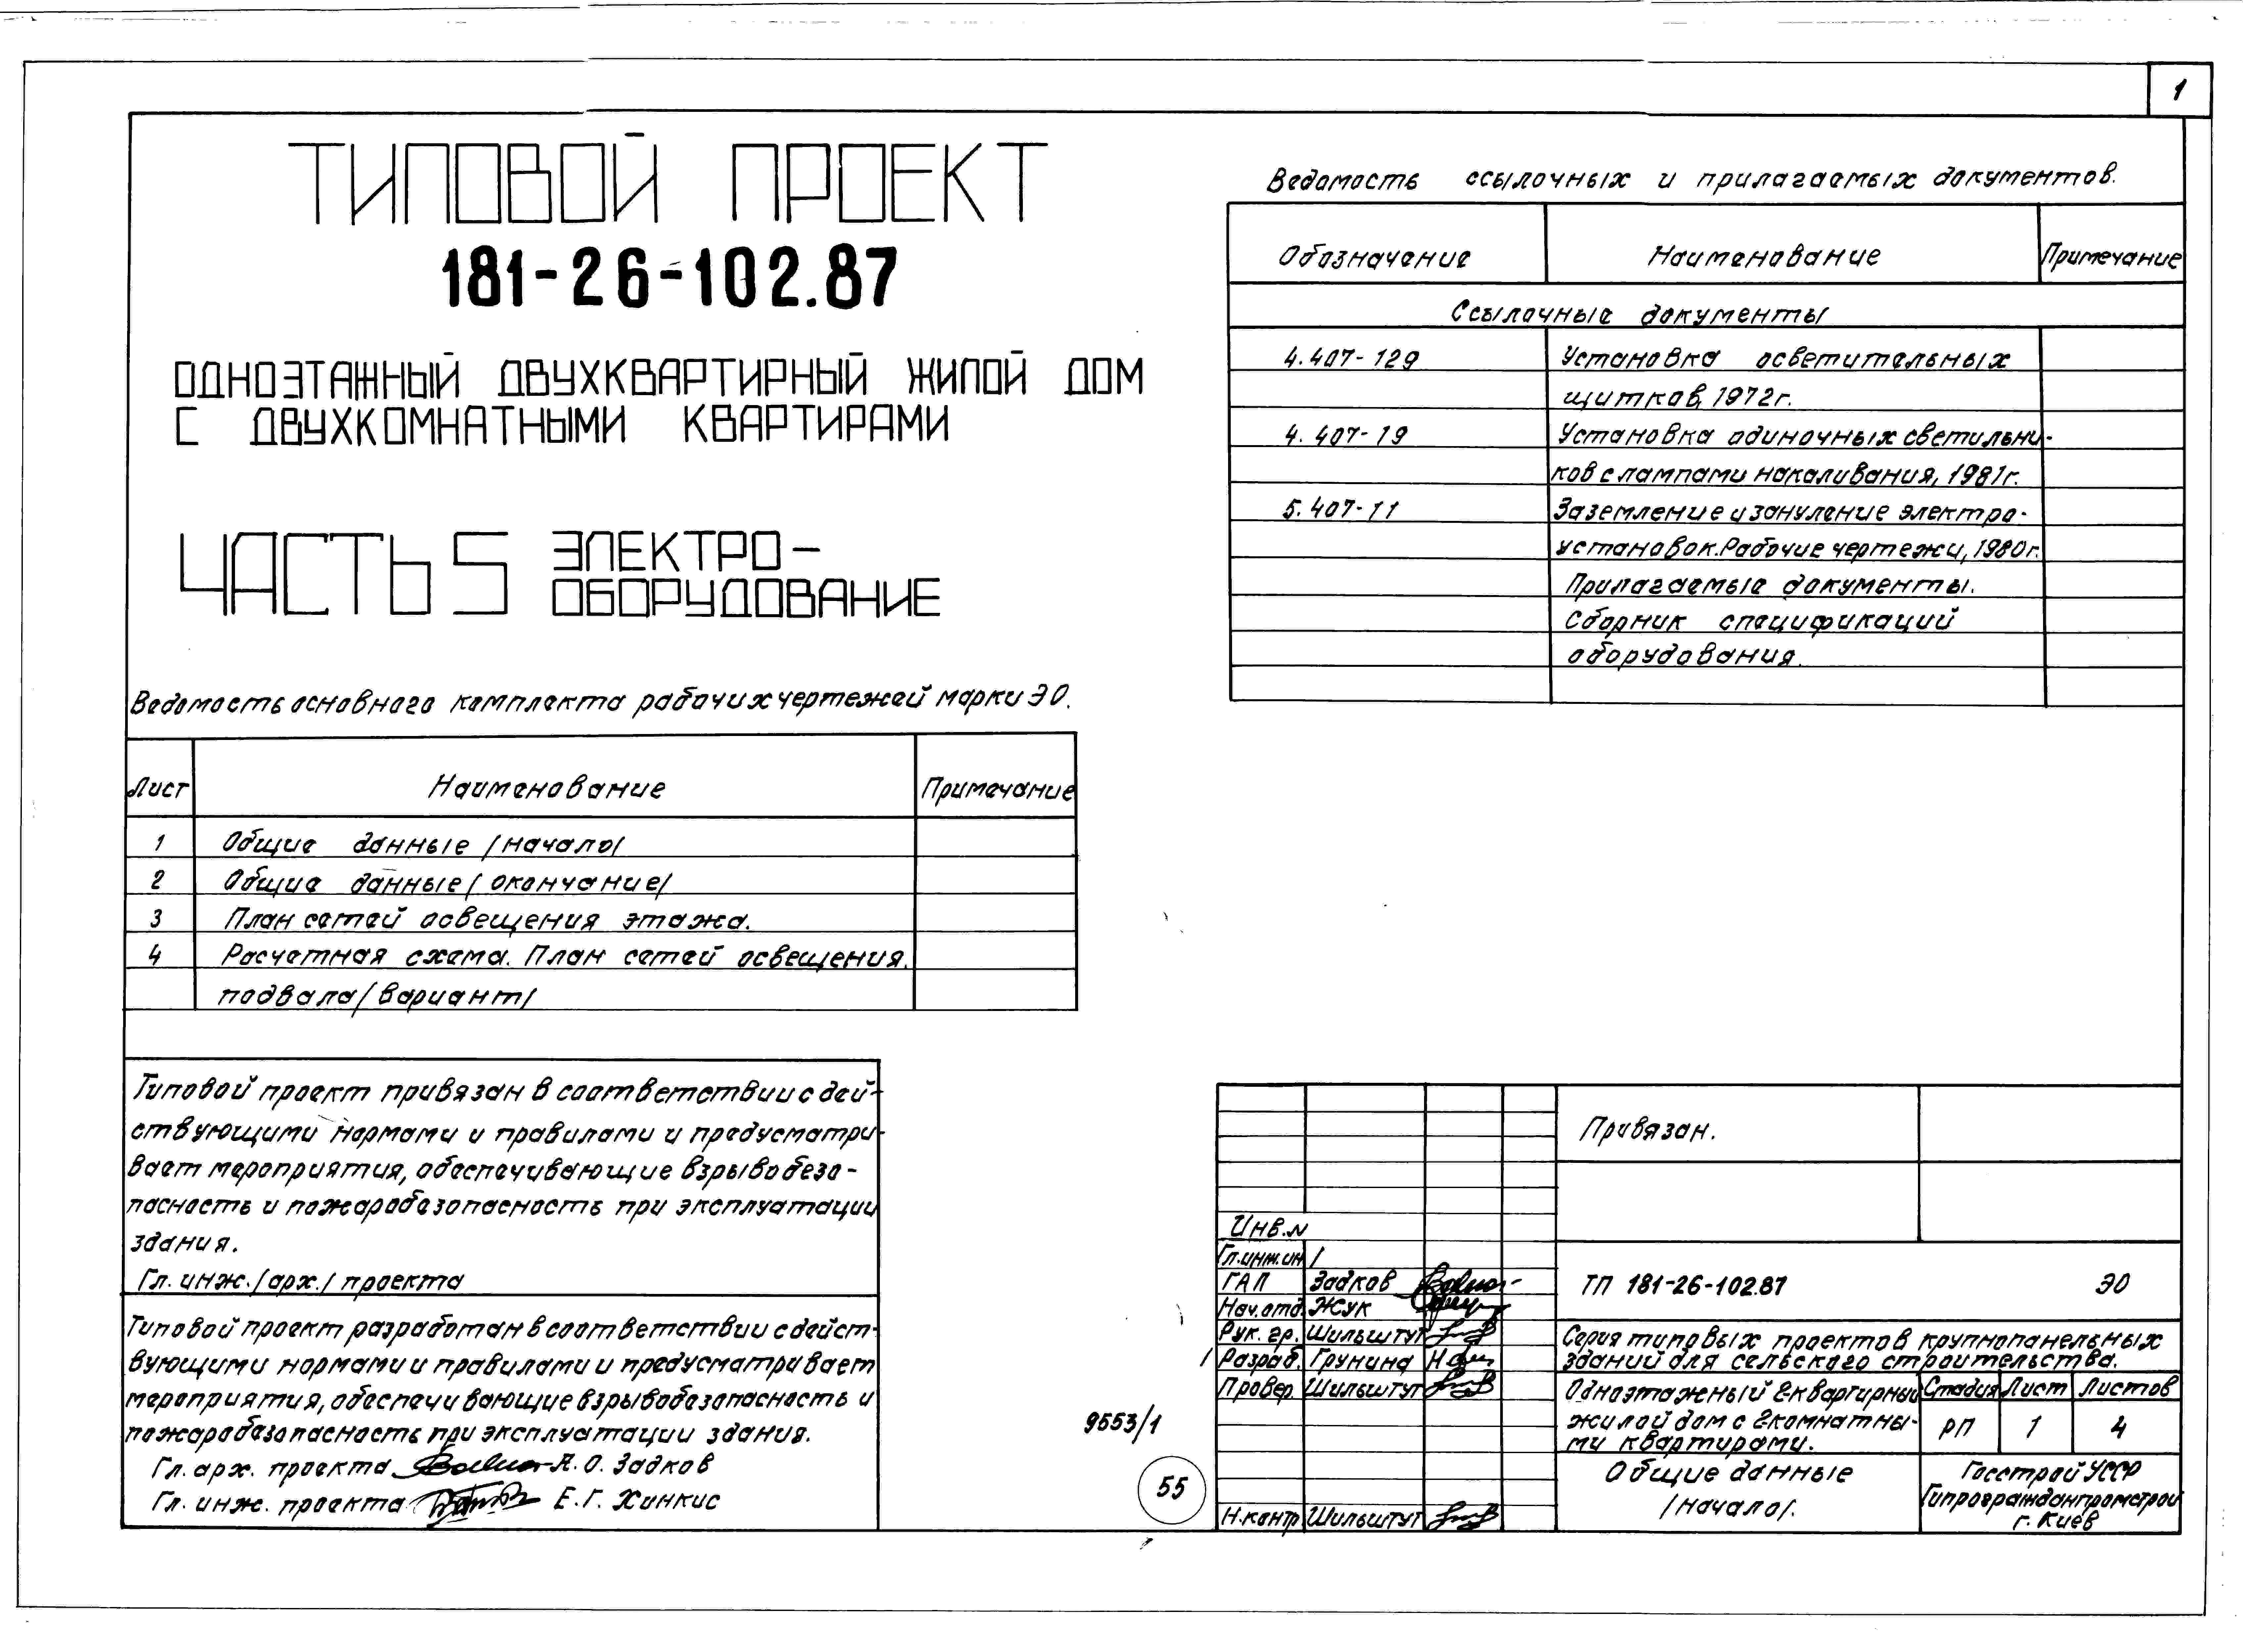 1
ТИПОВОЙ ПРОЕКТ
181-26-102.87
ОДНОЭТАЖНЫЙ ДВУХКВАРТИРНЫЙ ЖИЛОЙ ДОМ
С ДВУХКОМНАТНЫМИ КВАРТИРАМИ
ЧАСТЬ 5 ЭЛЕКТРО-
ОБОРУДОВАНИЕ
Ведомость основного комплекта рабочих чертежей марки ЭО.
Лист Наименование Примечание
1 Общие данные /начало/
2 Общие данные /окончание/
3 План сетей освещения этажа.
4 Расчетная схема. План сетей освещения.
подвала /вариант/
Типовой проект привязан в соответствии с дей-
ствующими нормами и правилами и предусматри-
вает мероприятия, обеспечивающие взрывобезо-
пасность и пожаробезопасность при эксплуатации
здания.
Гл. инж. /арх./ проекта
Типовой проект разработан в соответствии с дейст-
вующими нормами и правилами и предусматривает
мероприятия, обеспечивающие взрывобезопасность и
пожаробезопасность при эксплуатации здания.
Гл. арх. проекта А. О. Задков
Гл. инж. проекта Е. Г. Хинкис
Ведомость ссылочных и прилагаемых документов.
Обозначение Наименование Примечание
Ссылочные документы
4.407-129 Установка осветительных
щитков, 1972г.
4.407-19 Установка одиночных светильни-
ков с лампами накаливания, 1981г.
5.407-11 Заземление и зануление электро-
установок. Рабочие чертежи, 1980г.
Прилагаемые документы.
Сборник спецификаций
оборудования.
9553/1
55
Привязан.
Инв.N
Гл.инж.ин /
ГАП Задков
Нач.отд. Жук
Рук. гр. Шильштут
Разраб. Грунина
Провер. Шильштут
Н.контр Шильштут
ТП 181-26-102.87 ЭО
Серия типовых проектов крупнопанельных
зданий для сельского строительства.
Одноэтажный 2-квартирный
жилой дом с 2комнатны-
ми квартирами.
Стадия Лист Листов
РП 1 4
Общие данные
/начало/.
Госстрой УССР
Гипрогражданпромстрой
г. Киев